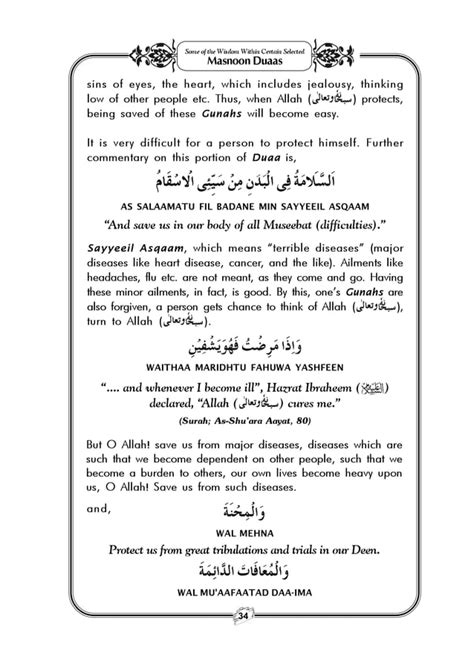 Some of the Wisdom Within Certain Selected
Masnoon Duaas
sins of eyes, the heart, which includes jealousy, thinking
low of other people etc. Thus, when Allah (سبحانہ وتعالٰی) protects,
being saved of these Gunahs will become easy.
It is very difficult for a person to protect himself. Further
commentary on this portion of Duaa is,
اَلسَّلَامَةُ فِى الْبَدَنِ مِنْ سَيِّئِى الْاَسْقَامُ
AS SALAAMATU FIL BADANE MIN SAYYEEIL ASQAAM
“And save us in our body of all Museebat (difficulties).”
Sayyeeil Asqaam, which means “terrible diseases” (major
diseases like heart disease, cancer, and the like). Ailments like
headaches, flu etc. are not meant, as they come and go. Having
these minor ailments, in fact, is good. By this, one’s Gunahs are
also forgiven, a person gets chance to think of Allah (سبحانہ وتعالٰی),
turn to Allah (سبحانہ وتعالٰی).
وَاِذَا مَرِضْتُ فَهُوَيَشْفِيْنِ
WAITHAA MARIDHTU FAHUWA YASHFEEN
“.... and whenever I become ill”, Hazrat Ibraheem (عليه السلام)
declared, “Allah (سبحانہ وتعالٰی) cures me.”
(Surah; As-Shu’ara Aayat, 80)
But O Allah! save us from major diseases, diseases which are
such that we become dependent on other people, such that we
become a burden to others, our own lives become heavy upon
us, O Allah! Save us from such diseases.
and,
وَالْمِحْنَةَ
WAL MEHNA
Protect us from great tribulations and trials in our Deen.
وَالْمُعَافَاتَ الدَّائِمَةَ
WAL MU'AAFAATAD DAA-IMA
34